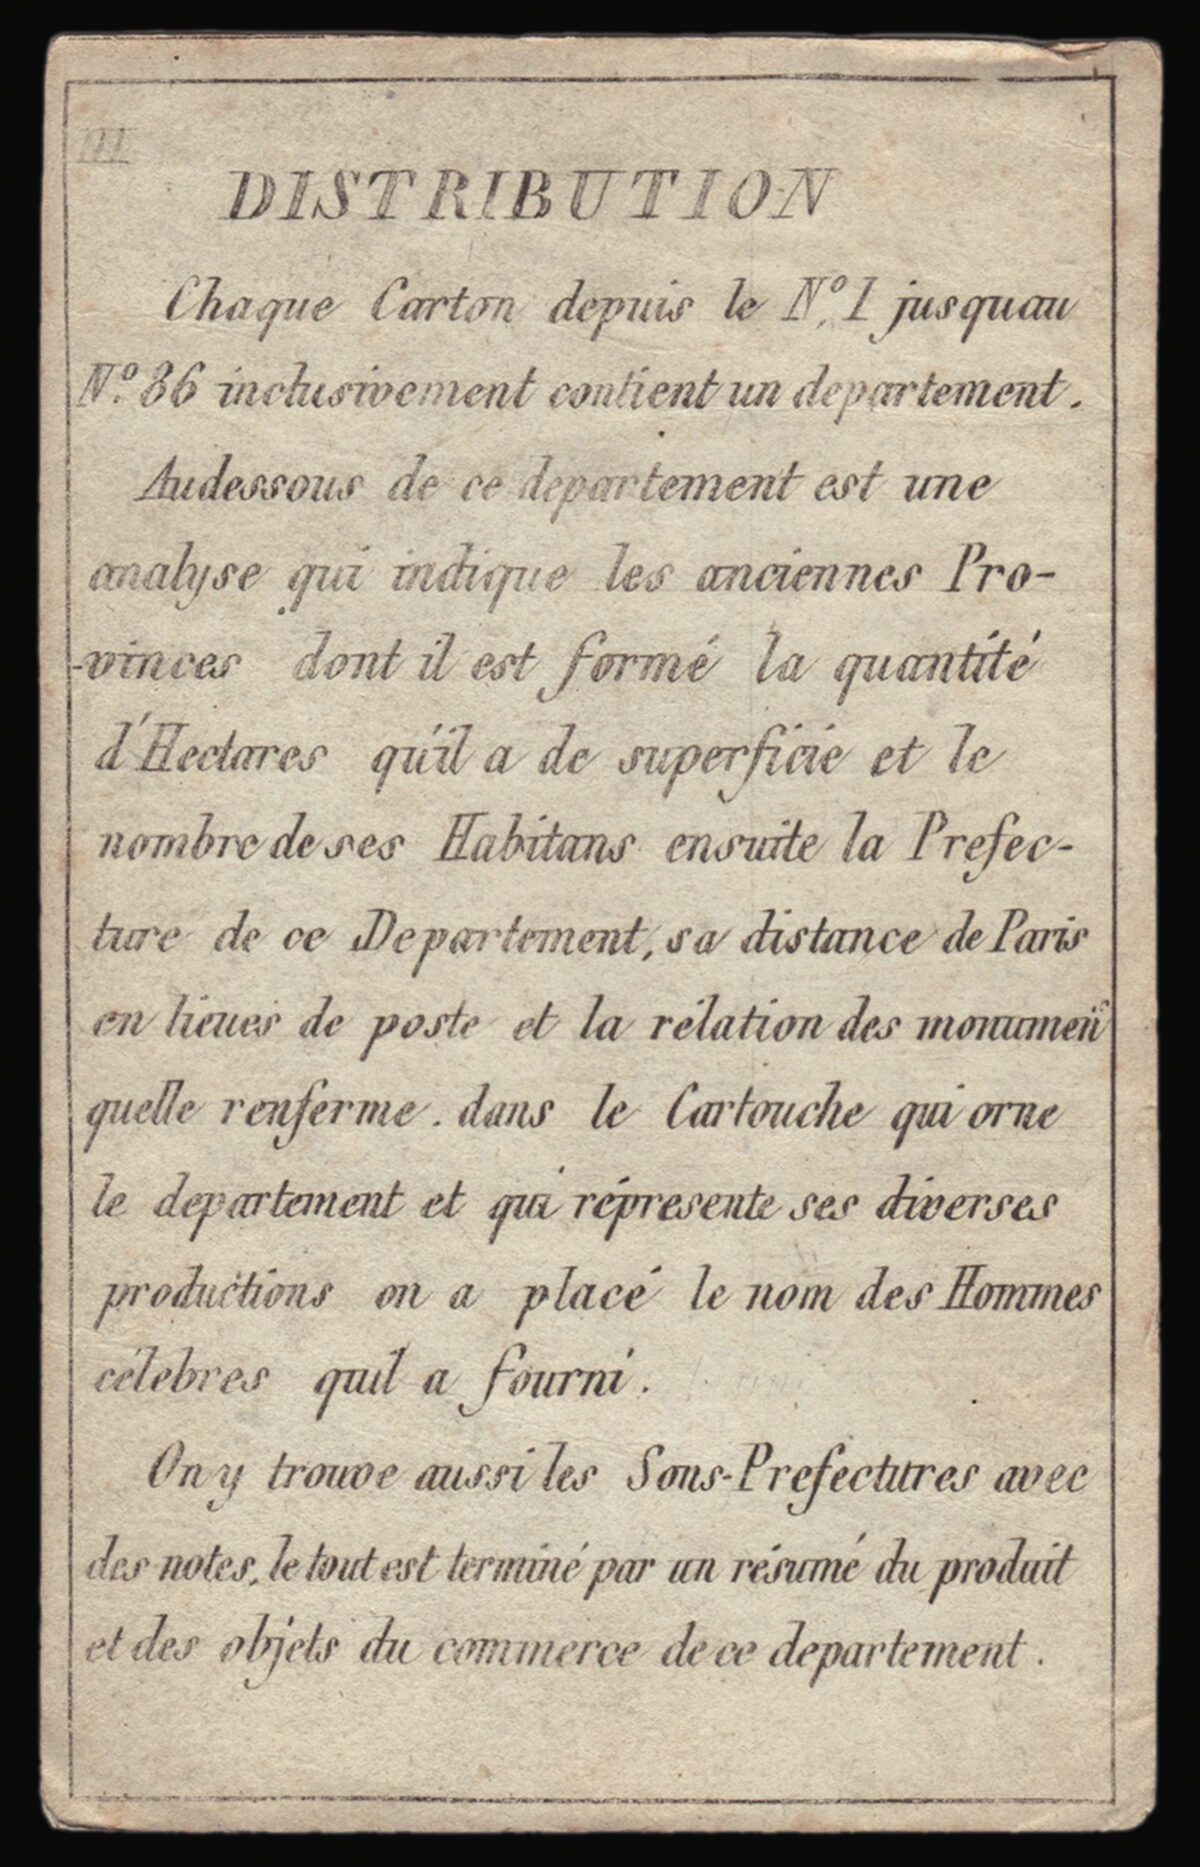 III
DISTRIBUTION
Chaque Carton depuis le N.º 1 jusquau
N.º 86 inclusivement contient un departement.
Audessous de ce departement est une
analyse qui indique les anciennes Pro-
-vinces dont il est formé la quantité
d'Hectares qu'il a de superficie et le
nombre de ses Habitans ensuite la Prefec-
ture de ce Departement, sa distance de Paris
en lieues de poste et la rélation des monumen.ˢ
quelle renferme. dans le Cartouche qui orne
le departement et qui réprésente ses diverses
productions on a placé le nom des Hommes
célebres quil a fourni.
On y trouve aussi les Sous-Prefectures avec
des notes, le tout est terminé par un résumé du produit
et des objets du commerce de ce departement.